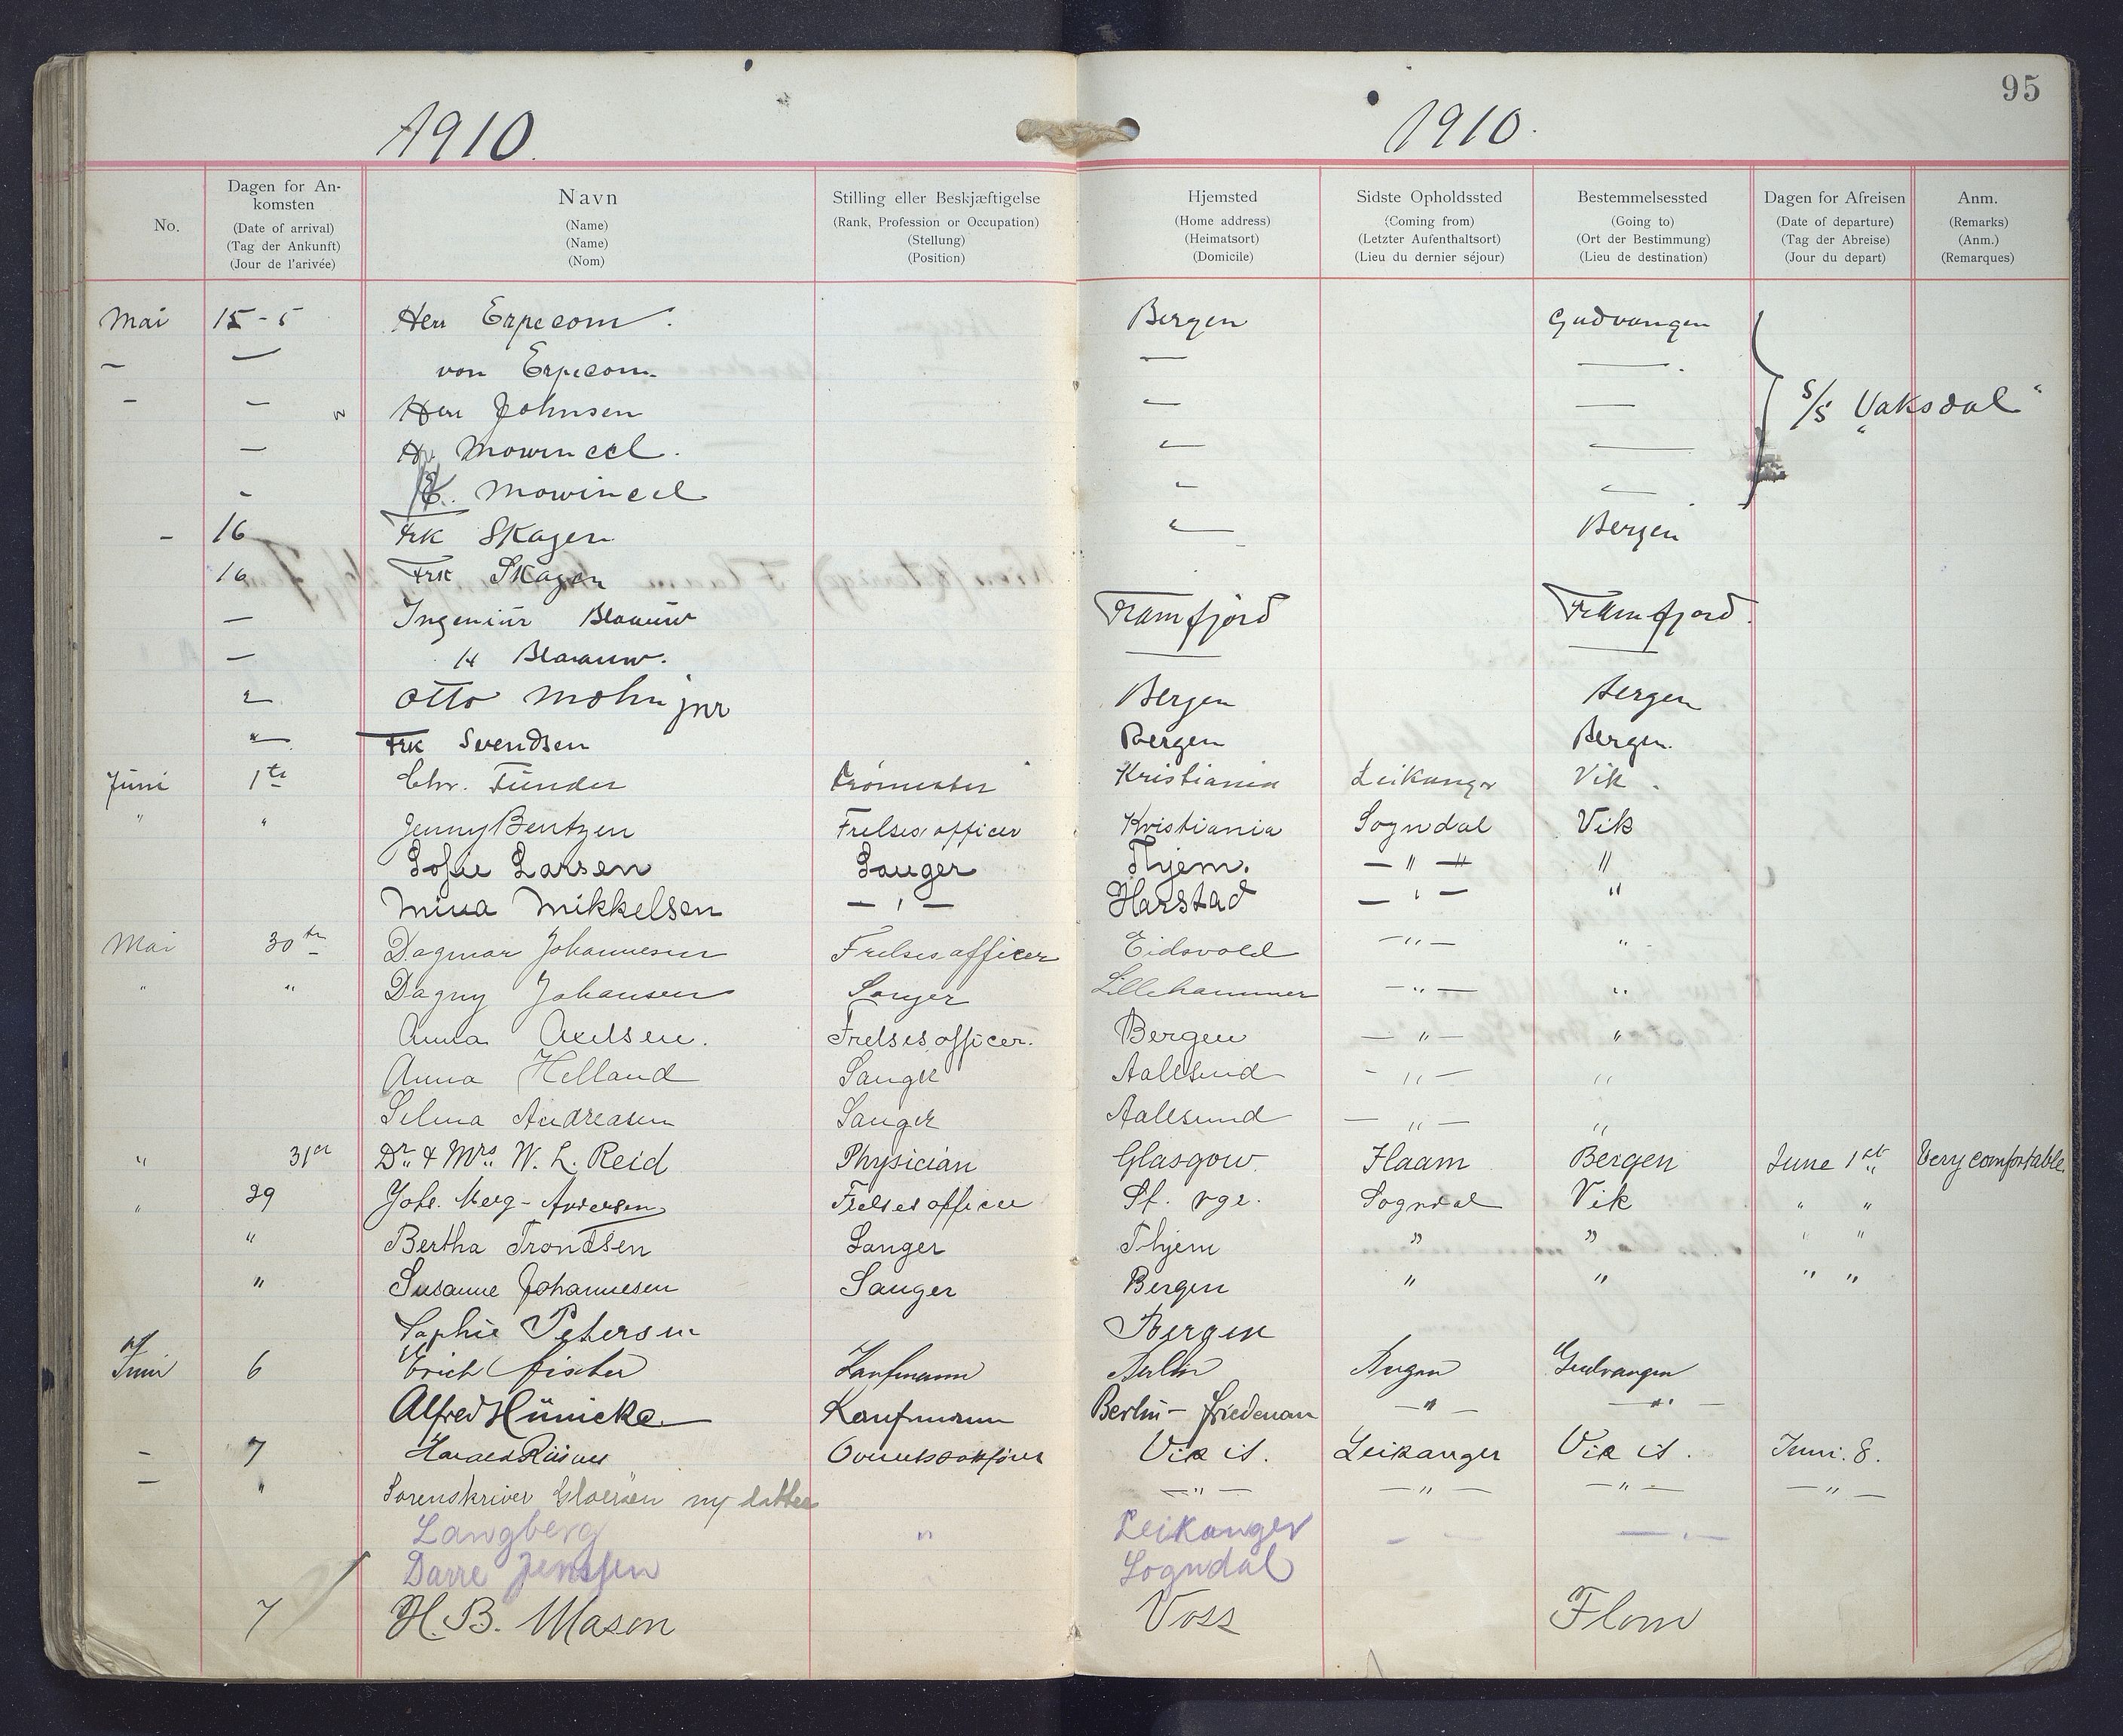 95
1910. 1910.
No. Dagen for Ankomsten (Date of arrival) (Tag der Ankunft) (Jour de l'arivée) Navn (Name) (Name) (Nom) Stilling eller Beskjæftigelse (Rank, Profession or Occupation) (Stellung) (Position) Hjemsted (Home address) (Heimatsort) (Domicile) Sidste Opholdssted (Coming from) (Letzter Aufenthaltsort) (Lieu du dernier séjour) Bestemmelsessted (Going to) (Ort der Bestimmung) (Lieu de destination) Dagen for Afreisen (Date of departure) (Tag der Abreise) (Jour du depart) Anm. (Remarks) (Anm.) (Remarques)
Mai 15-5 Herr Erpecom. Bergen Gudvangen
— — von Erpecom. — —
- — Herr Johnsen — — S/S "Vaksdal"
— Mowinccl. — —
- Mowinccl — —
- 16 Frk Skagen — Bergen
16 Frk Skagen
— Ingeniür Blaauw Framfjord Framfjord.
— H Blaauw.
— Otto Mohn jnr Bergen Bergen
— Frk Svendsen Bergen Bergen.
Juni 1te Chr. Tünder Kristiania Leikanger Vik.
" " Jenny Bentzen Frelsesofficer Kristiania Sogndal Vik
Sofie Larsen Sanger Thjem. —"— "
Mina Mikkelsen —"— Harstad —"— "
Mai 30te Dagmar Johannesen Frelsesofficer Eidsvold —"— "
" " Dagny Johansen Sanger Lillehammer —"— "
Anna Axelsen. Frelsesofficer. Bergen —"— "
Anna Helland Sanger Aalesund —"— "
Selma Andreasen Sanger Aalesund —"— "
" 31st Dr. & Mrs. W. L. Reid Physician Glasgow. Flaam Bergen June 1st Very comfortable.
" 29 Johs. Frelsesofficer Sogndal Vik " "
" Bertha Trondsen Sanger Thjem " " " "
" Susanne Johannesen Sanger Bergen " " " "
Sophie Petersen Bergen
Juni 6 Erich Fischer Kaufmann Berlin Bergen Gudvangen
Alfred Hünicke Kaufmann Berlin-Friedenau —"— —"—
- 7 Harald Vik Leikanger Vik Juni. 8.
— " Sorenskriver —"— —"— —"— —"—
Langberg " Leikanger - - —"—
Darre Jenssen Sogndal
7 H. B. Mason Voss Flom